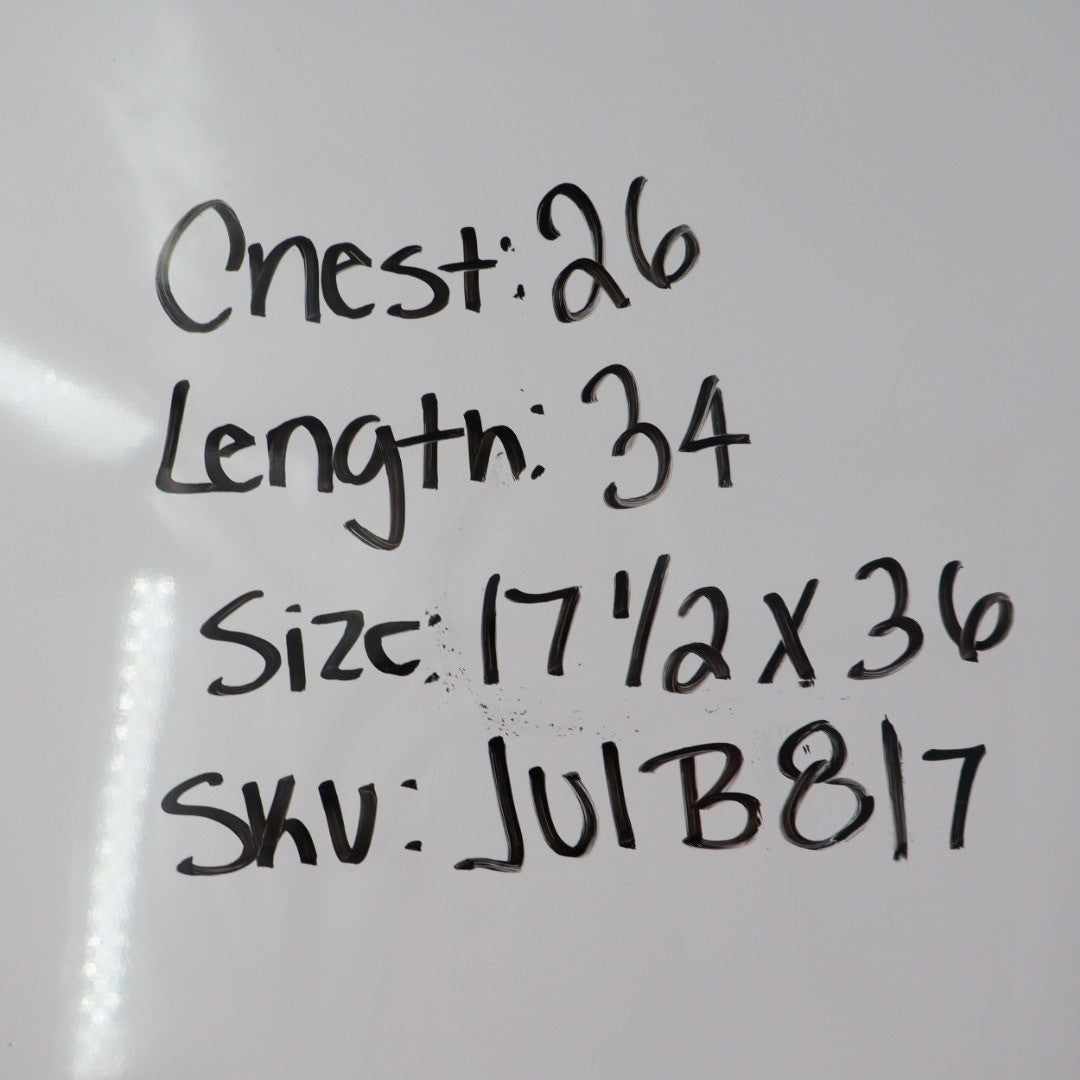 Chest: 26
Length: 34
Size: 17 1/2 X 36
SKU: JulB817